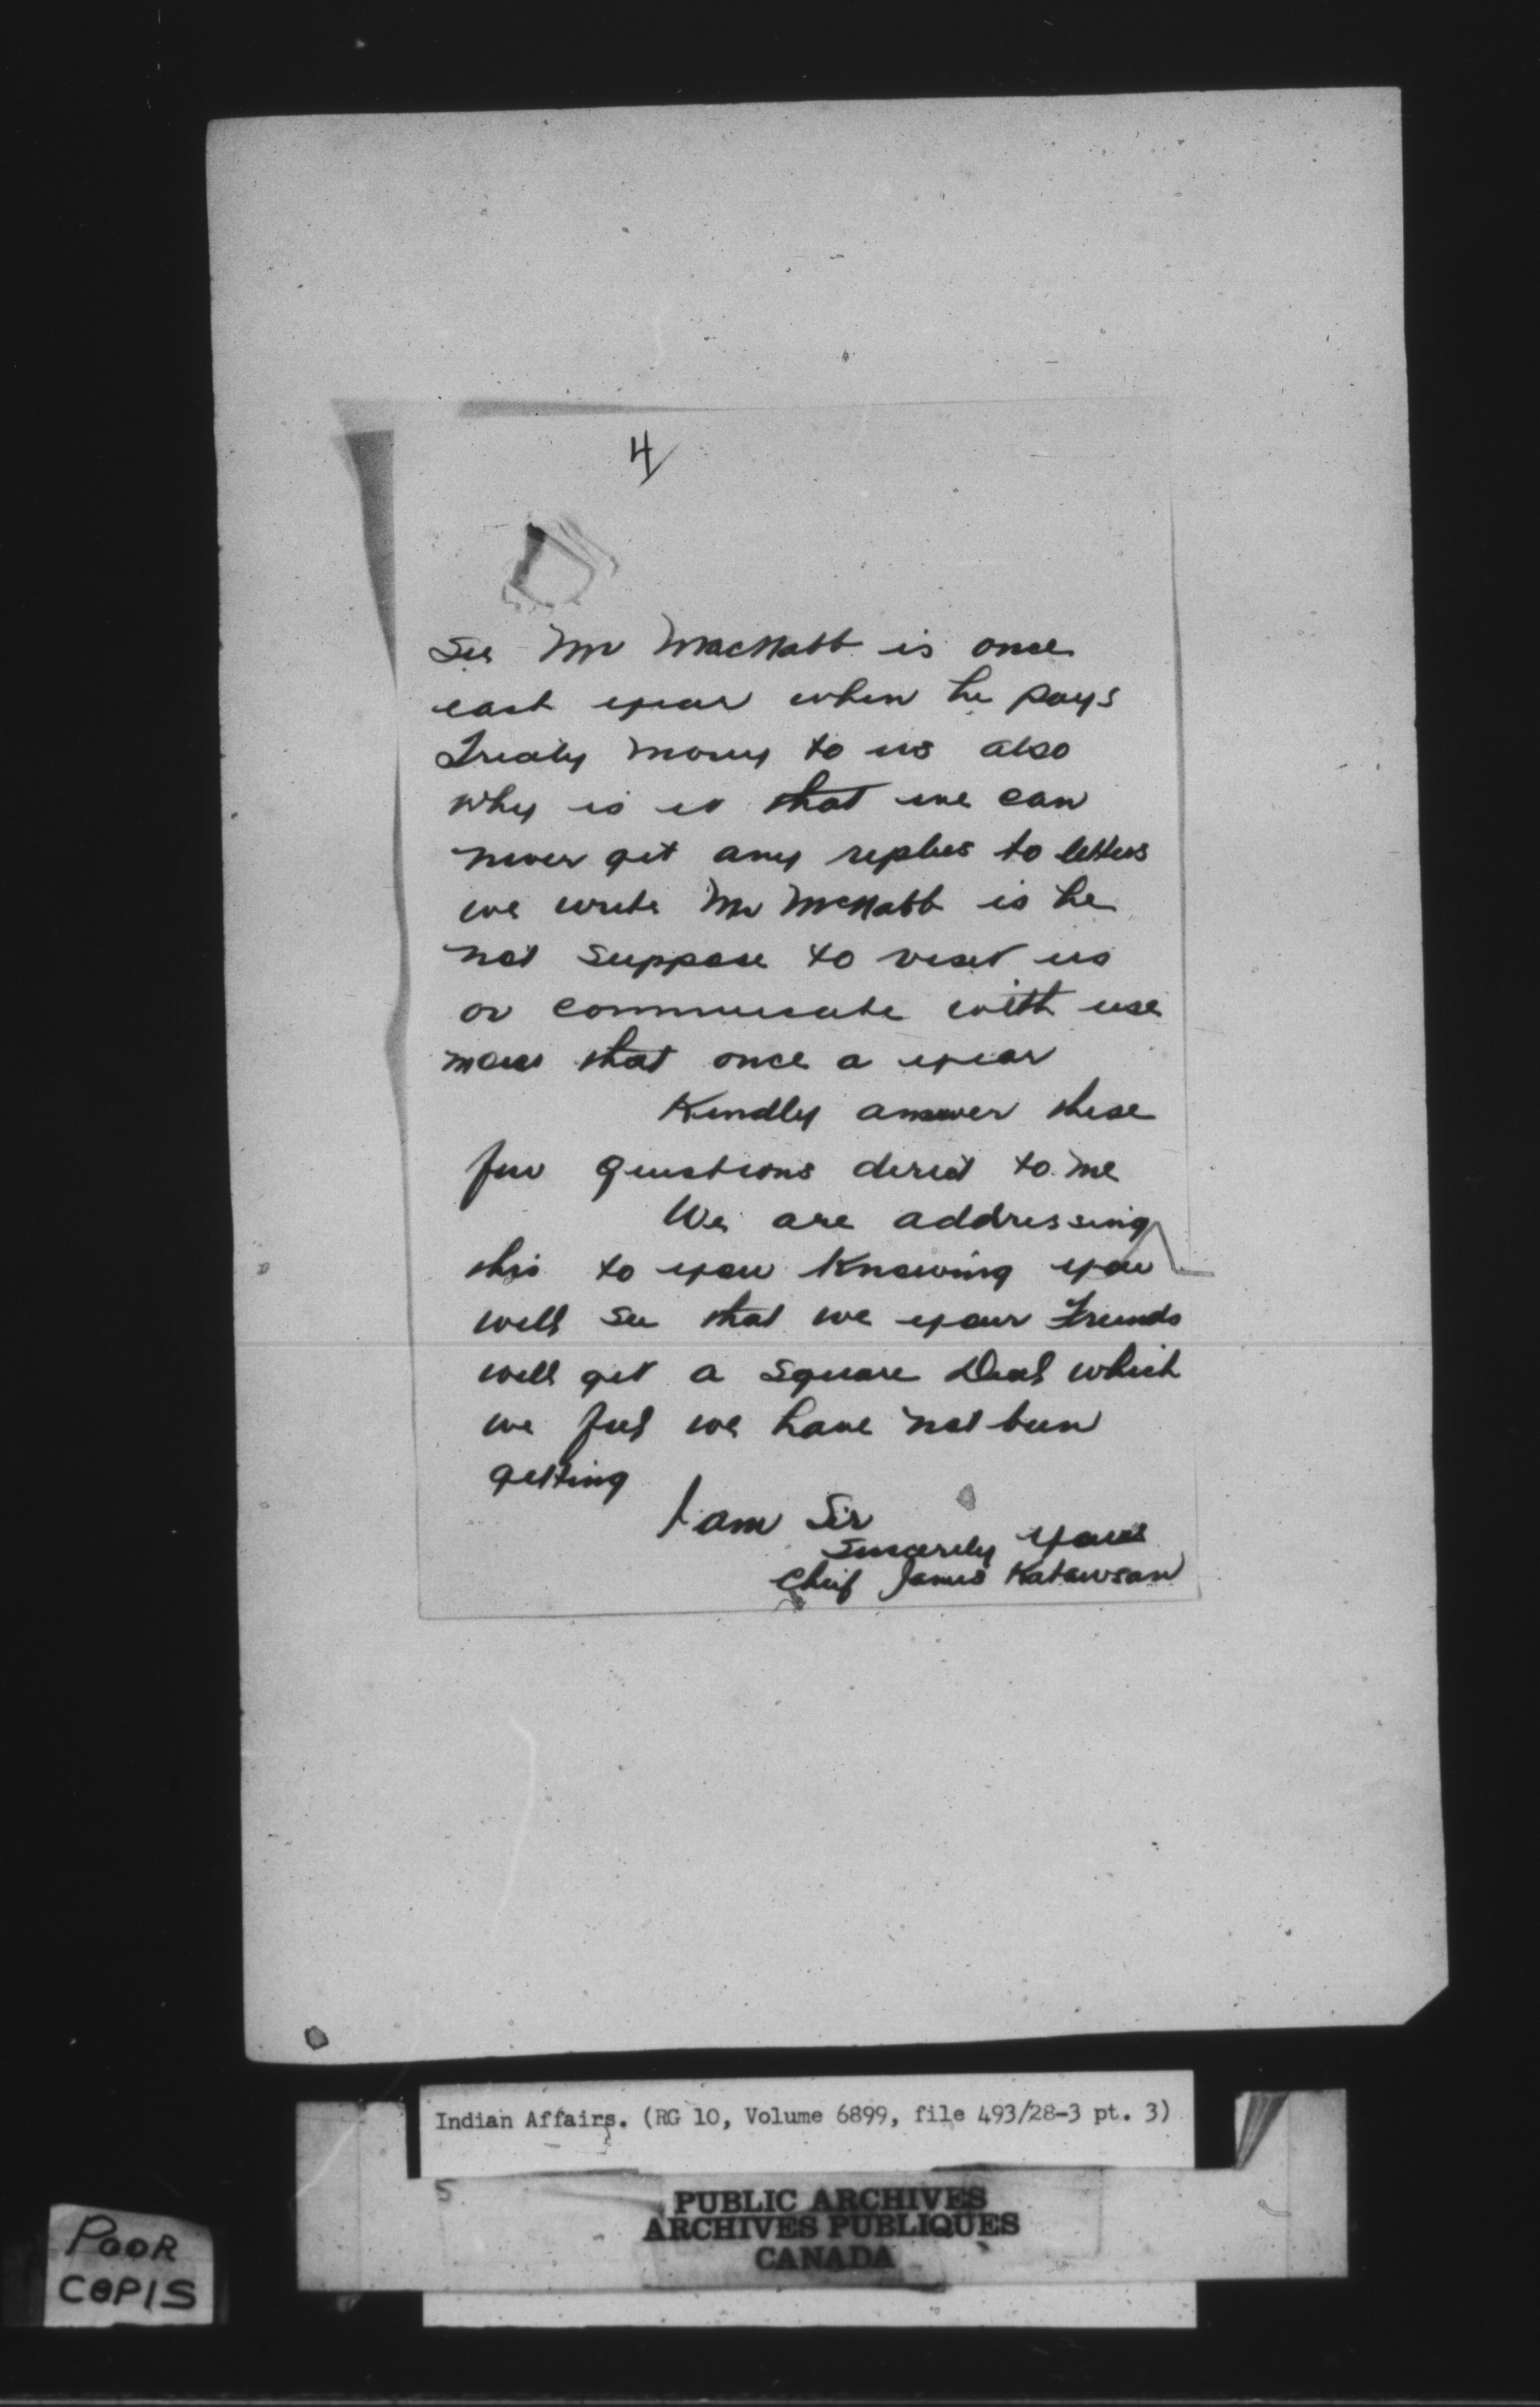 4
See Mr MacNabb is once
each year when he pays
Treaty money to us also
why is it that we can
never get any replies to letters
we write Mr McNabb is he
not suppose to visit us
or communicate with use
more that once a year
Kindly answer these
few questions direct to me
We are addressing
this to you knowing you
will see that we your Friends
will get a square Deal which
we feel we have not been
getting
I am Sir
Sincerely yours
Chief James Katawson
Indian Affairs. (RG 10, Volume 6899, file 493/28-3 pt. 3)
PUBLIC ARCHIVES
ARCHIVES PUBLIQUES
CANADA
POOR
COPIS